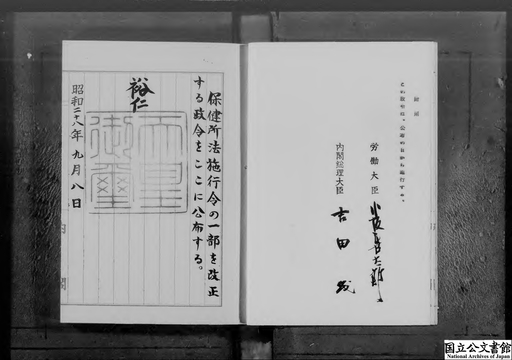 附則
この政令は、公布の日から施行する。
労働大臣 小坂善太郎
内閣総理大臣 吉田茂
保健所法施行令の一部を改正
する政令をここに公布する。
裕仁
天皇
御璽
昭和二十八年九月八日
内閣
国立公文書館
National Archives of Japan